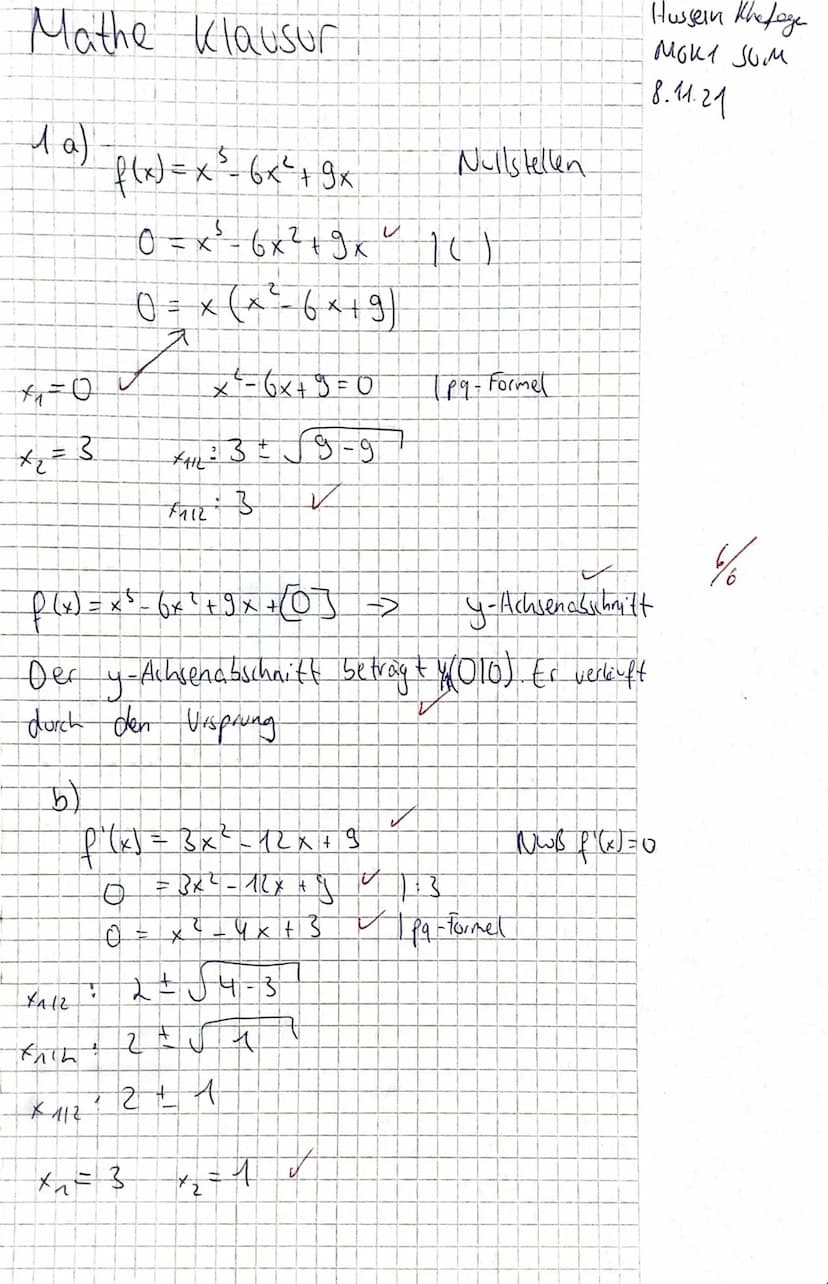 Mathe Klausur
Hussein Khefage
MGK1 SUM
8.11.21
1 a)
f(x) = x³ - 6x² + 9x Nullstellen
0 = x³ - 6x² + 9x ✓ | ( )
0 = x (x² - 6x + 9)
x₁ = 0 ✓ x² - 6x + 9 = 0 | pq-Formel
x₂ = 3 x₁/₂ : 3 ± √9 - 9
x₁/₂ : 3 ✓
6/6
f(x) = x³ - 6x² + 9x + [0] -> y-Achsenabschnitt ✓
Der y-Achsenabschnitt beträgt (0|0). Er verläuft
durch den Ursprung ✓
b)
f'(x) = 3x² - 12x + 9 ✓ NwB f'(x) = 0
0 = 3x² - 12x + 9 ✓ | : 3
0 = x² - 4x + 3 ✓ | pq-Formel
x₁/₂ : 2 ± √4 - 3
x₁/₂ : 2 ± √1
x₁/₂ : 2 ± 1
x₁ = 3 x₂ = 1 ✓